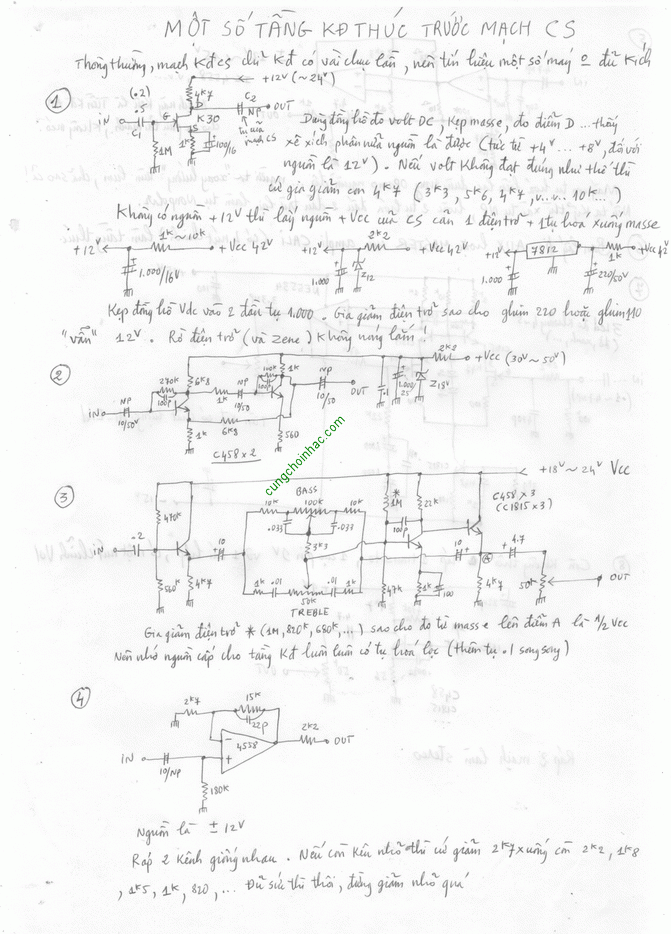 MỘT SỐ TẦNG KĐ THÚC TRƯỚC MẠCH CS
Thông thường, mạch KĐ CS chỉ KĐ có vài chục lần, nên tín hiệu một số máy ko đủ kích
1
+12V (~24V)
4K7
(.2)
.5
C2
OUT
NP
IN
G
D
K30
C1
S
1M
1K
100/16
Dùng đồng hồ đo volt DC, kẹp masse, đo điểm D ... thấy
xê xích phân nửa nguồn là được (tức từ +4V ... +8V, đối với
nguồn là 12V). Nếu volt không đạt đúng như thế thì
cứ gia giảm con 4K7 (3K3, 5K6, 4K7, v..v.. 10K...)
Không có nguồn +12V thì lấy nguồn +Vcc của CS cần 1 điện trở + 1 tụ hóa xuống masse
+12V
1K ~ 10K
+Vcc 42V
1.000/16V
+12V
2K2
+Vcc 42V
1.000
Z12
+12V
7812
1K
+Vcc 42V
1.000
220/50V
Kẹp đồng hồ Vdc vào 2 đầu tụ 1.000. Gia giảm điện trở sao cho ghim 220 hoặc ghim 110
"vẫn" 12V. Rờ điện trở (và zene) không nóng lắm!
2
2K2
+Vcc (30V ~ 50V)
270K
100P
6K8
1K
NP
10/50
100K
100P
1K
NP
10/50
OUT
.1
1.000
25
Z18V
IN
NP
10/50V
1K
6K8
560
C458 x 2
cungchoinhac.com
3
+18V ~ 24V Vcc
C458 x 3
(C1815 x 3)
470K
BASS
10K
100K
10K
.033
.033
*
1M
22K
100P
IN
.2
10
3K3
10
A
4.7
560K
4K7
1K
.01
50K
.01
1K
TREBLE
47K
1K
100
4K7
50K
OUT
Gia giảm điện trở * (1M, 820K, 680K, ...) sao cho đo từ masse lên điểm A là 1/2 Vcc
Nên nhớ nguồn cấp cho tầng KĐ luôn luôn có tụ hóa lọc (thêm tụ .1 song song)
4
2K7
15K
22P
4558
2K2
OUT
IN
10/NP
180K
Nguồn là ± 12V
Ráp 2 kênh giống nhau. Nếu còn kêu nhỏ thì cứ giảm 2K7 xuống còn 2K2, 1K8
, 1K5, 1K, 820, ... Đủ sức thì thôi, đừng giảm nhỏ quá